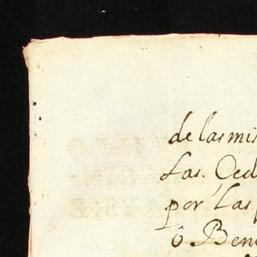 de las mis
tas. Ced
por las
ô Ben